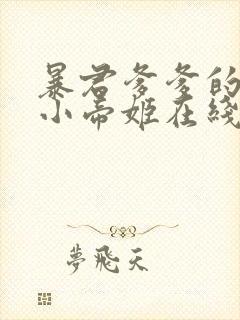 暴君爹爹的
小帝姬在綫
夢飛天